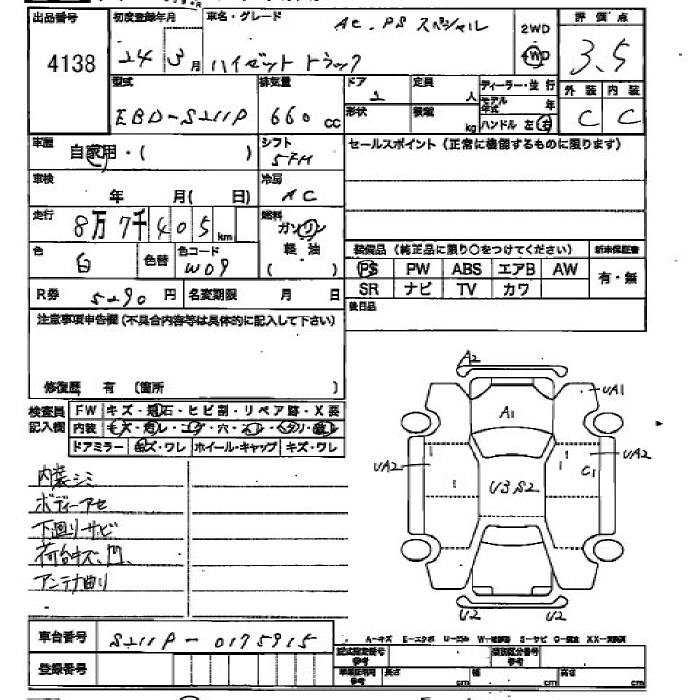 出品番号 初度登録年月 車名・グレード AC.PS スペシャル 2WD 評価点
4138 24 3月 ハイゼット トラック 4WD 3.5
型式 排気量 ドア 定員 ディーラー・並行 外装 内装
EBD-S211P 660cc 2 人 モデル年式 年 C C
形状 積載 kg ハンドル 左 右
車歴 自家用・( ) シフト 5FM セールスポイント(正常に機能するものに限ります)
車検 年 月( 日) 冷房 AC
走行 8万7千405km 燃料 ガソリン
軽油
( )
色 白 色替 色コード W09 装備品(純正品に限り○をつけてください) 新車保証書
PS PW ABS エアB AW 有・無
SR ナビ TV カワ
R券 5290円 名変期限 月 日 後日品
注意事項申告欄(不具合内容等は具体的に記入して下さい)
修復歴 有 〔箇所 〕
検査員記入欄 FW キズ・飛石・ヒビ割・リペア跡・X要
内装
ドアミラー キズ・ワレ ホイール・キャップ キズ・ワレ
内装シミ
ボディーアセ
下廻りサビ
荷台キズ、凹
アンテナ曲り
A2
UA1
A1
UA2
UA2
C1
U3S2
U2 U2
車台番号 S211P-0175915
登録番号
A-キズ
長さ cm 幅 cm 高さ cm